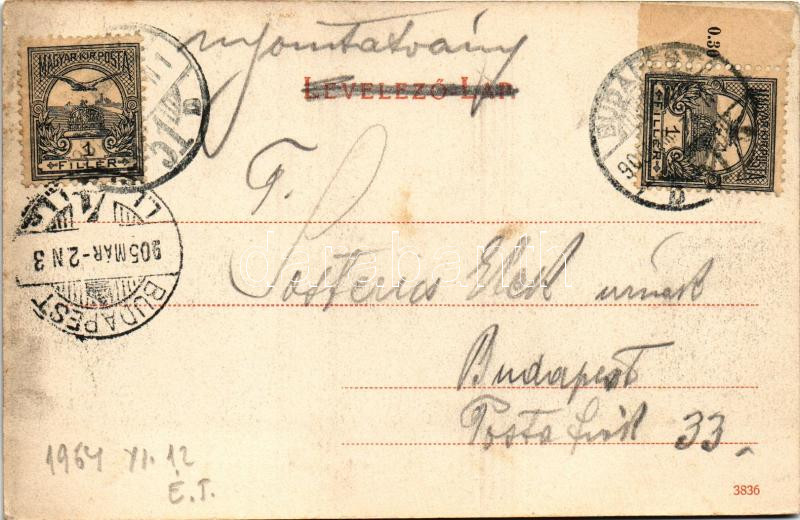 nyomtatvány
LEVELEZŐ LAP.
MAGYAR KIR. POSTA
1
FILLÉR
0.30
BUDAPEST
1
FILLÉR
905 MÁR-2 N 3
BUDAPEST
T.
Elek úrnak
Budapest
Posta fiók 33.
1964 XI. 12
É.T.
3836
darabanth